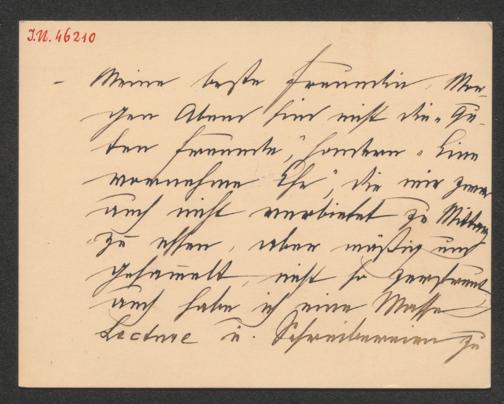 I.N. 46210
– Meine beste Freundin, Mor-
gen Abend sind nicht die „Gu-
ten Freunde," sondern „Eine
vornehme Ehe", die mir zwar
auch nicht verbietet zu Mittag
zu essen, aber mäßig und
gesammelt, nicht so zerstreut
auch habe ich eine Masse
Lecture u. Schreibereien zu